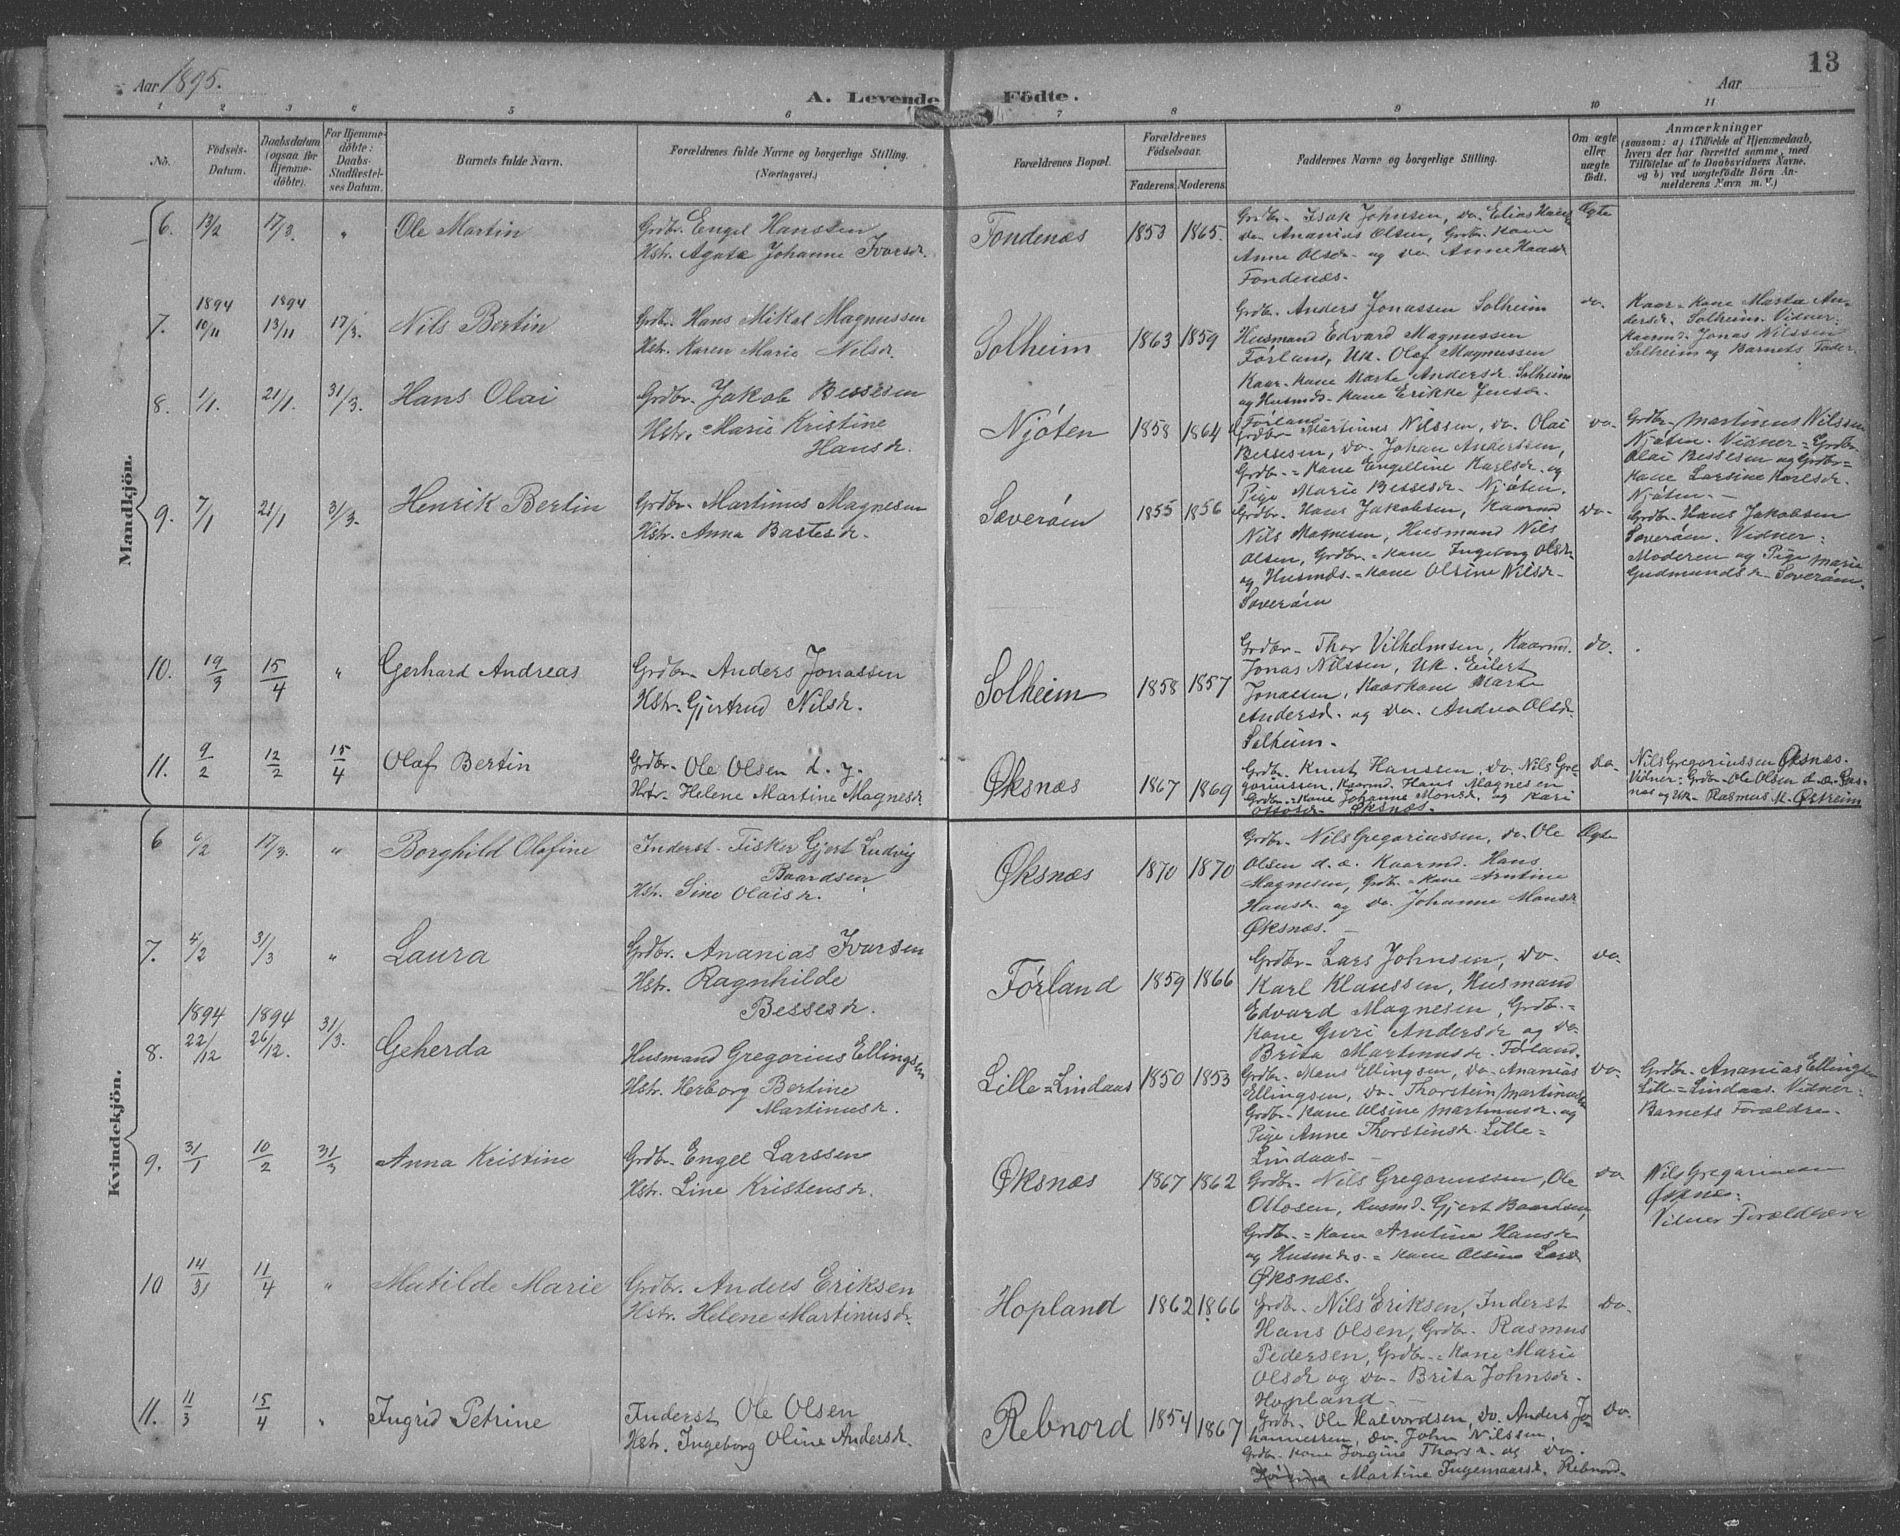 13
Aar 1895.
A. Levende Födte.
Aar
1 2 3 4 5 6 7 8 9 10 11
No.
Födsels-Datum.
Daabsdatum (ogsaa for Hjemmedöbte).
For Hjemmedöbte: Daabs-Stadfæstelses Datum.
Barnets fulde Navn.
Forældrenes fulde Navne og borgerlige Stilling. (Næringsvei.)
Forældrenes Bopæl.
Forældrenes Födselsaar.
Faderens. Moderens.
Faddernes Navne og borgerlige Stilling.
Om ægte eller uægte födt.
Anmærkninger
(saasom: a) i Tilfælde af Hjemmedaab, hvers der har forrettet samme, med Tilföielse af to Daabsvidners Navne, og b) ved uægtefödte Börn Anmelderens Navn m. V.)
Mandkjön.
6. 13/2 17/3. " Ole Martin
Grdbr. Engel Hanssen
Hstr. Agate Johanne Ivarsdr.
Fondenæs 1853 1865.
Grdbr. Isak Johnsen, do. Elias Hans
do Ananias Olsen, Grdbr. Kone
Anne Olsdr. og do. Anne Hansdr
Fondenæs.
Ægte
7. 1894 10/11 1894 13/11 17/3. Nils Bertin
Grdbr. Hans Mikal Magnussen
Hstr. Karen Marie Nilsdr.
Solheim 1863 1859
Grdbr. Anders Jonassen Solheim
Husmand Edvard Magnussen
Førland, Uk. Olaf Magnussen
Kaar-kone Marte Andersdr. Solheim
og Husmds-kone Erikke Jensdr.
Førland
do.
Kaar-kone Marta An-
dersdr. Solheim. Vidner:
Kaarmd. Jonas Nilssen
Solheim og Barnets Fader.
8. 1/1. 21/1. 31/3. Hans Olai
Grdbr. Jakob Bessesen
Hstr. Marie Kristine
Hansdr.
Njøten 1858 1864
Grdbr. Martinus Nilssen, do. Olai
Bessesen, do. Johan Anderssen,
Grdbr.=Kone Engelline Karlsdr. og
Pige Marie Bessesdr. Njøten.
do.
Grdbr. Martinus Nilssen
Njøten. Vidner: Grdbr.
Olai Bessesen og Grdbr=
Kone Larsine Karlsdr.
Njøten.
9. 7/1 21/1 31/3. Henrik Bertin
Grdbr. Martinus Magnesen
Hstr. Anna Bastesdr.
Sæverøm 1855 1856
Grdbr. Hans Jakobsen, Kaarmd
Nils Magnesen, Husmand Nils
Olsen, Grdbr.=Kone Ingeborg Olsdr.
og Husmds.=Kone Olsine Nilsdr.
Sæverøm
do.
Grdbr. Hans Jakobsen
Sæverøm. Vidner:
Moderen og Pige Marie
Gudmundsdr. Sæverøm.
10. 19/3 15/4 " Gerhard Andreas
Grdbr. Anders Jonassen
Hstr. Gjertrud Nilsdr.
Solheim 1858 1857
Grdbr. Thor Vilhelmsen, Kaarmd.
Jonas Nilssen, Uk. Eilert
Jonassen, Kaarkone Marte
Andersd. og do. Andrea Olsdr.
Solheim.
do.
11. 9/2 12/2 15/4 Olaf Bertin
Grdbr. Ole Olsen d. y.
Hstr. Helene Martine Magnesdr
Øksnæs 1867 1869
Grdbr. Knut Hanssen, do. Nils Gre-
goriussen, Kaarmd. Hans Magnesen
Grdbr.=Kone Johanne Monsdr. og Kari
Ottosdr. Øksnæs.
do.
Nils Gregoriussen Øksnæs.
Vidner: Grdbr. Ole Olsen d. æ. Øks-
næs og Uk. Rasmus M. Østreim
Kvindekjön.
6 6/2 17/3. " Borghild Olafine
Inderst. Fisker Gjert Ludvig
Baardsen
Hstr. Sine Olaisdr.
Øksnæs 1870 1870
Grdbr. Nils Gregoriussen, do. Ole
Olsen d. æ. Kaarmd. Hans
Magnesen, Grdbr.=Kone Arntine
Hansdr og do. Johanne Monsdr.
Øksnæs.
Ægte
7. 4/2 31/3 " Laura
Grdbr. Ananias Ivarsen
Hstr. Ragnhilde
Bessesdr.
Førland 1859 1866
Grdbr. Lars Johnsen, do.
Karl Klaussen, Husmand
Edvard Magnesen, Grdbr.=
Kone Guri Andersdr og do.
Brita Martinusdr. Førland.
do.
8. 1894 22/12 1894 26/12. 31/3. Geherda
Husmand Gregorius Ellingsen
Hstr. Herborg Bertine
Martinusdr.
Lille=Lindaas 1850 1853
Grdbr. Mons Ellingsen, do. Ananias
Ellingsen, do. Thorstein Martinussen
Grdbr. Kone Olsine Martinusdr. og
Pige Anne Thorstinsdr. Lille=
Lindaas
do.
Grdbr. Ananias Ellingsen
Lille=Lindaas. Vidner.
Barnets Forældre.
9. 31/1 10/2 31/3 Anna Kristine
Grdbr. Engel Larssen
Hstr. Line Kristensdr.
Øksnæs 1867 1862
Grdbr. Nils Gregoriussen, Ole
Ottosen, Husmd. Gjert Baardsen,
Grdbr.=Kone Arntine Hansdr
og Husmds.=Kone Olsine Larsdr
Øksnæs.
do
Nils Gregoriussen
Øksnæs.
Vidner Forældrene
10 14/31 11/4 " Matilde Marie
Grdbr. Anders Eriksen
Hstr. Helene Martinusdr.
Hopland 1862 1866
Grdbr. Nils Eriksen, Inderst
Hans Olsen, Grdbr. Rasmus
Pedersen, Grdbr.=Kone Marie
Olsdr og do. Brita Johnsdr.
Hopland.
do.
11. 11/3 15/4 " Ingrid Petrine
Inderst Ole Olsen
Hstr. Ingeborg Oline Andersdr.
Rebnord 1854 1867
Grdbr. Ole Halvordsen, do. Anders Jo-
hannessen, do. John Nilssen,
Grdbr. Kone Jørgine Thorsdr. og do.
Martine Ingemaarsdr. Rebnord.
do.